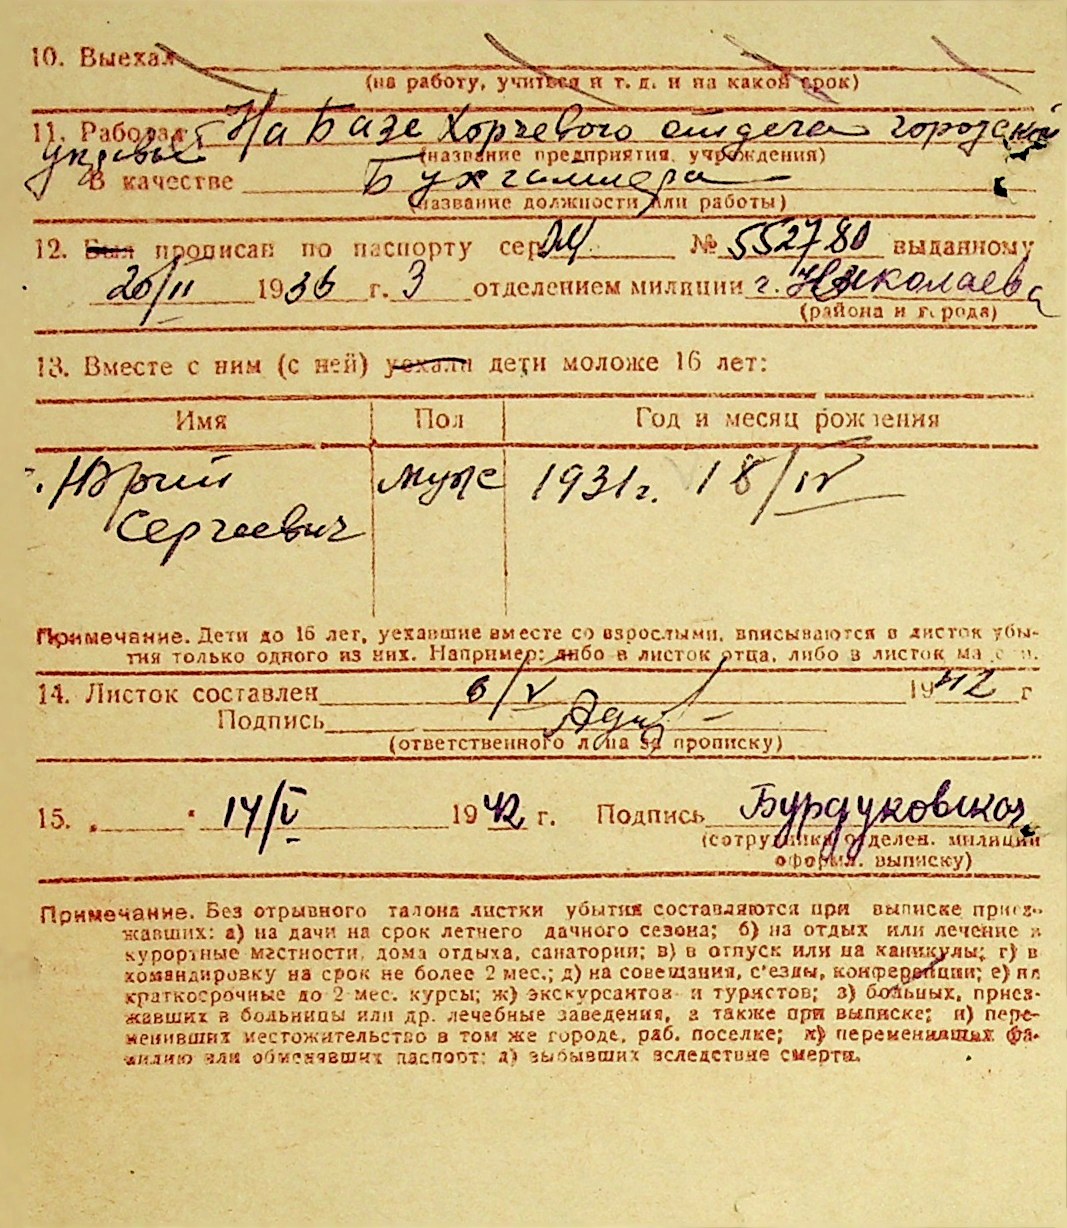 10. Выехал
(на работу, учиться и т. д. и на какой срок)
11. Работал На Базе Хорчевого отдела городской
управы
(название предприятия, учреждения)
В качестве Бухгалтера
(название должности или работы)
12. Был прописан по паспорту сер № 552780 выданному
20/II 1936 г. 3 отделением милиции г. Николаева
(района и города)
13. Вместе с ним (с ней) уехали дети моложе 16 лет:
Имя Пол Год и месяц рождения
Юрий муж 1931 г. 18/IV
Сергеевич
Примечание. Дети до 16 лет, уехавшие вместе со взрослыми, вписываются в листок убы-
тия только одного из них. Например: либо в листок отца, либо в листок матери.
14. Листок составлен 6/V 1942 г
Подпись
(ответственного лица за прописку)
15. „ " 14/V 1942 г. Подпись Бурдуковская
(сотрудника отделен. милиции
оформ. выписку)
Примечание. Без отрывного талона листки убытия составляются при выписке приез-
жавших: а) на дачи на срок летнего дачного сезона; б) на отдых или лечение в
курортные местности, дома отдыха, санатории; в) в отпуск или на каникулы; г) в
командировку на срок не более 2 мес.; д) на совещания, с'езды, конференции; е) на
краткосрочные до 2 мес. курсы; ж) экскурсантов и туристов; з) больных, приез-
жавших в больницы или др. лечебные заведения, а также при выписке; и) пере-
менивших местожительство в том же городе, раб. поселке; к) переменивших фа-
милию или обменявших паспорт; л) выбывших вследствие смерти.